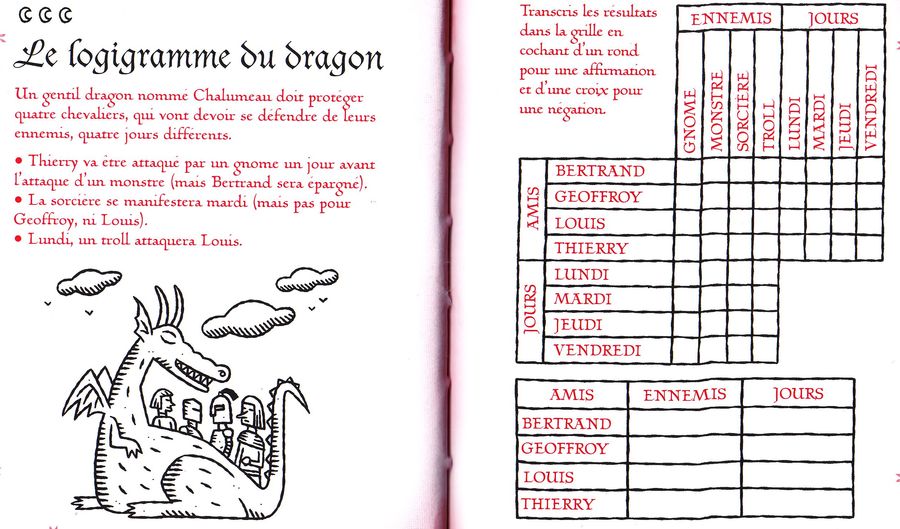 Le logigramme du dragon
Un gentil dragon nommé Chalumeau doit protéger
quatre chevaliers, qui vont devoir se défendre de leurs
ennemis, quatre jours différents.
• Thierry va être attaqué par un gnome un jour avant
l'attaque d'un monstre (mais Bertrand sera épargné).
• La sorcière se manifestera mardi (mais pas pour
Geoffroy, ni Louis).
• Lundi, un troll attaquera Louis.
Transcris les résultats
dans la grille en
cochant d'un rond
pour une affirmation
et d'une croix pour
une négation.
ENNEMIS JOURS
GNOME MONSTRE SORCIÈRE TROLL LUNDI MARDI JEUDI VENDREDI
AMIS
BERTRAND
GEOFFROY
LOUIS
THIERRY
JOURS
LUNDI
MARDI
JEUDI
VENDREDI
AMIS ENNEMIS JOURS
BERTRAND
GEOFFROY
LOUIS
THIERRY